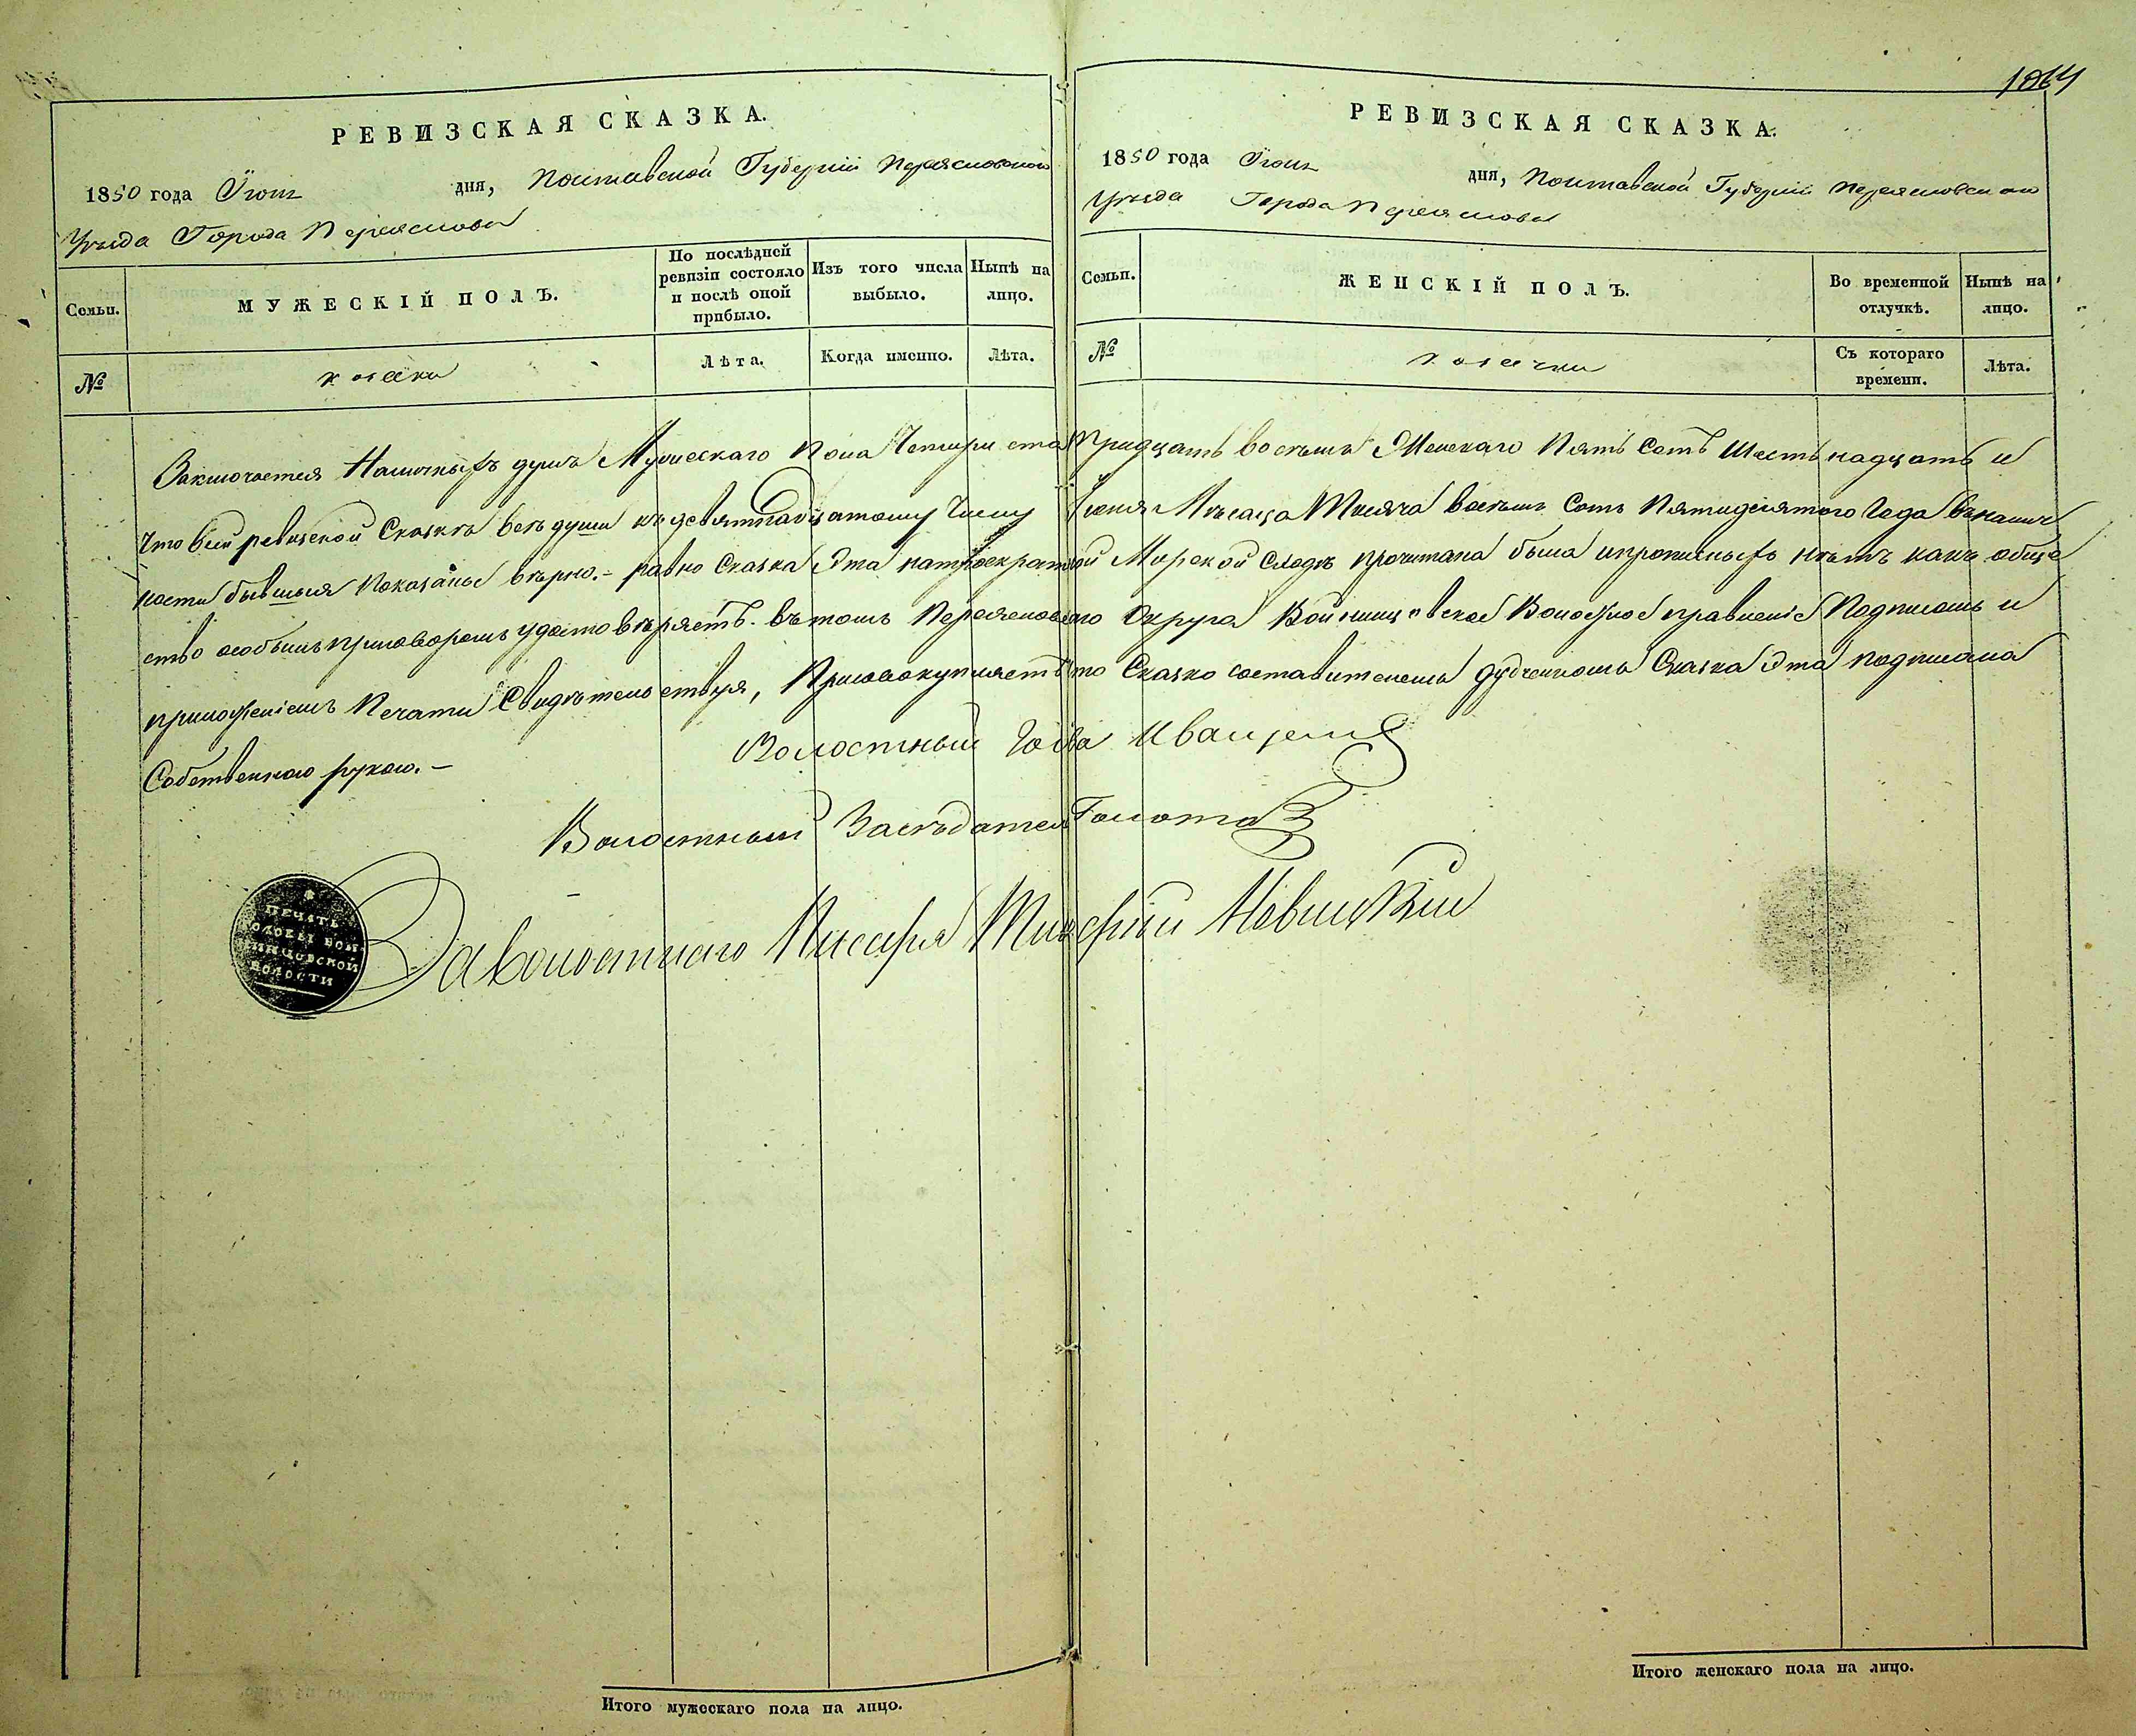 1864
РЕВИЗСКАЯ СКАЗКА.
1850 года Іюня дня, Полтавской Губерніи Переясловского
Уѣзда Города Переяслова
Семьи.
МУЖЕСКІЙ ПОЛЪ.
По послѣдней ревизіи состояло и послѣ оной прибыло.
Изъ того числа выбыло.
Нынѣ на лицо.
№
козаки
Лѣта.
Когда именно.
Лѣта.
РЕВИЗСКАЯ СКАЗКА.
1850 года Іюня дня, Полтавской Губерніи Переясловского
Уѣзда Города Переяслова
Семьи.
ЖЕНСКІЙ ПОЛЪ.
Во временной отлучкѣ.
Нынѣ на лицо.
№
козачки
Съ котораго времени.
Лѣта.
Заключается Наличныхъ душъ Мужескаго пола Четыри ста тридцать восемь Женскаго Пять Сотъ Шестьнадцать и
что всей ревизской Сказкѣ всѣ души къ девятнадцатому Числу Іюня Мѣсаца Тисяча восемь Сотъ Пятидесятого Года въналич
ности бывшыя показаны вѣрно.- равно Сказка Эта натроекратной Мирской Сходѣ прочитана была ипрописныхъ нѣтъ какъ обще
ство особымъ приговоромъ удостовѣряетъ. въ томъ Переясловского Округа Войницовское Волосное правленіе Подписомъ и
приложеніемъ Печати Свидѣтельствуя, Присовокупляетъ что Сказко составителемъ Дубченкомъ Сказка Эта подписана
Собственною рукою.-
Волостный Голова Иващенко
Волостный Засѣдатель Голота
За волостнаго Писаря Тимофій Новицкій
ПЕЧАТЬ
ГОЛОВЫ ВОЙ
НИЦОВСКОЙ
ВОЛОСТИ
Итого мужескаго пола на лицо.
Итого женскаго пола на лицо.